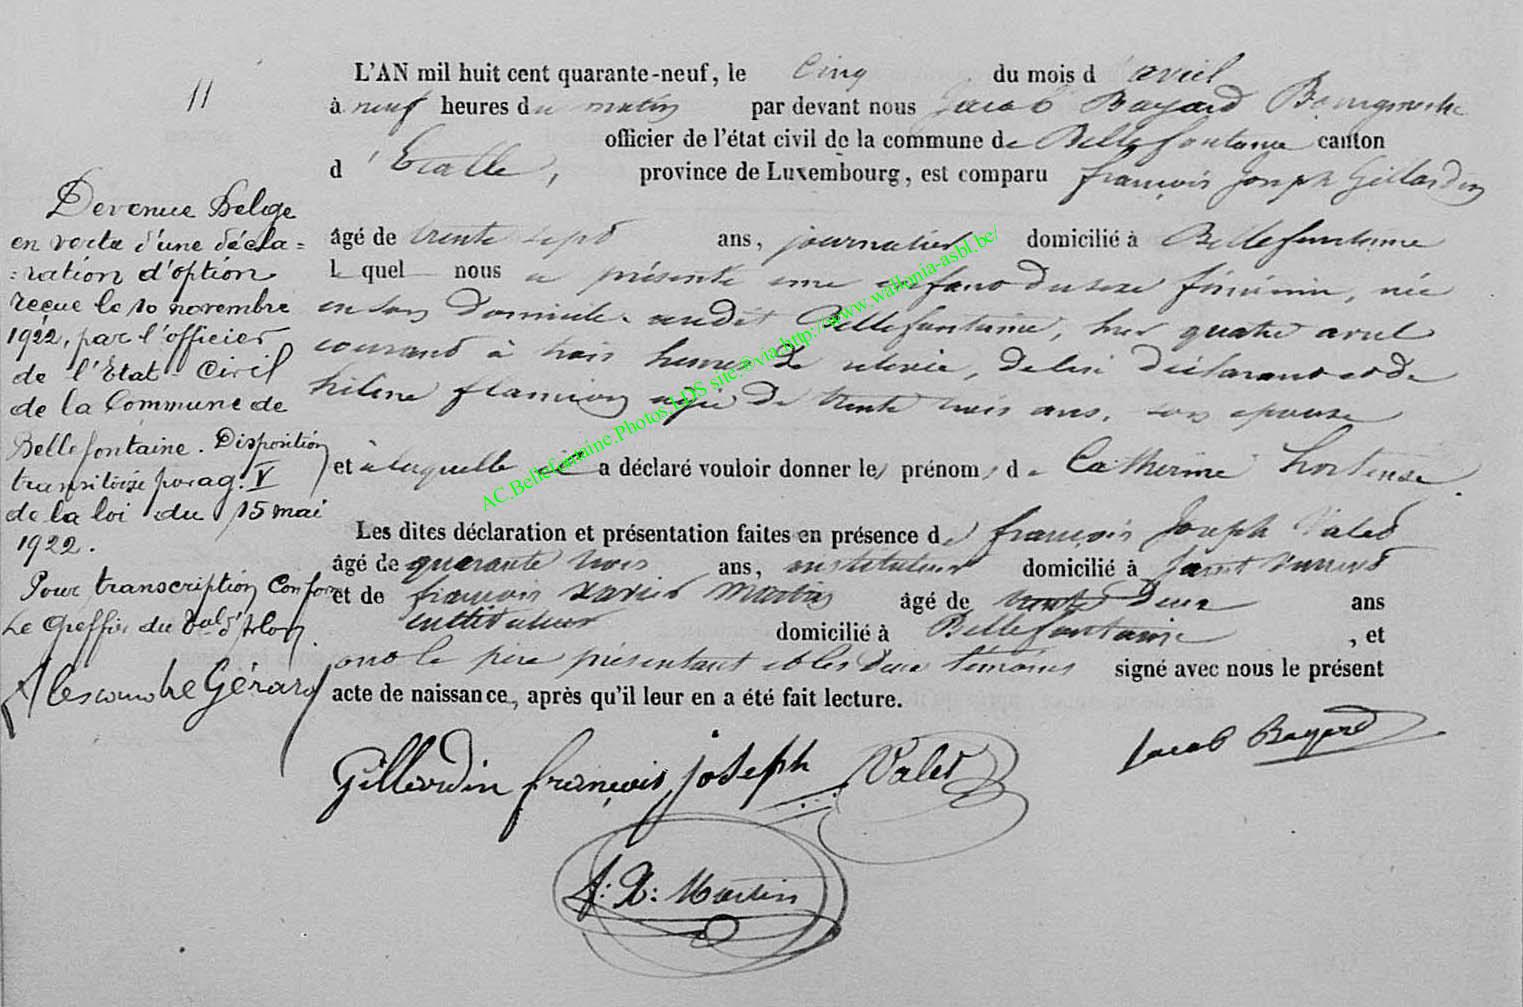 11
L'AN mil huit cent quarante-neuf, le Cinq du mois d'avril
à neuf heures du matin par devant nous Jacob Bayard Bourgmestre
officier de l'état civil de la commune de Bellefontaine canton
d'Etalle, province de Luxembourg, est comparu françois Joseph Gillardin
âgé de trente sept ans, journalier domicilié à Bellefontaine
lequel nous a présenté une enfant du sexe féminin, née
en son domicile audit Bellefontaine, hier quatre avril
courant à trois heures de relevée, de lui déclarant et de
hélène flamion agée de trente trois ans, son epouse
et à laquelle il a déclaré vouloir donner les prénoms de Catherine hortense.
Les dites déclaration et présentation faites en présence de françois Joseph Valet
âgé de quarante trois ans, instituteur domicilié à Saint Vincent
et de françois xavier Martin âgé de trente deux ans
instituteur domicilié à Bellefontaine, et
ont le père présentant et les deux témoins signé avec nous le présent
acte de naissance, après qu'il leur en a été fait lecture.
Gillardin françois joseph Valet Jacob Bayard
f: X: Martin
Devenue Belge
en vertu d'une décla=
=ration d'option
reçue le 10 novembre
1922, par l'officier
de l'Etat-Civil
de la Commune de
Bellefontaine. Disposition
transitoire parag. V
de la loi du 15 mai
1922.
Pour transcription conforme
Le Greffier du Tal d'Arlon
Gérard
AC.Bellefontaine.Photos LDS site ©via http://www.wallonia-asbl.be/